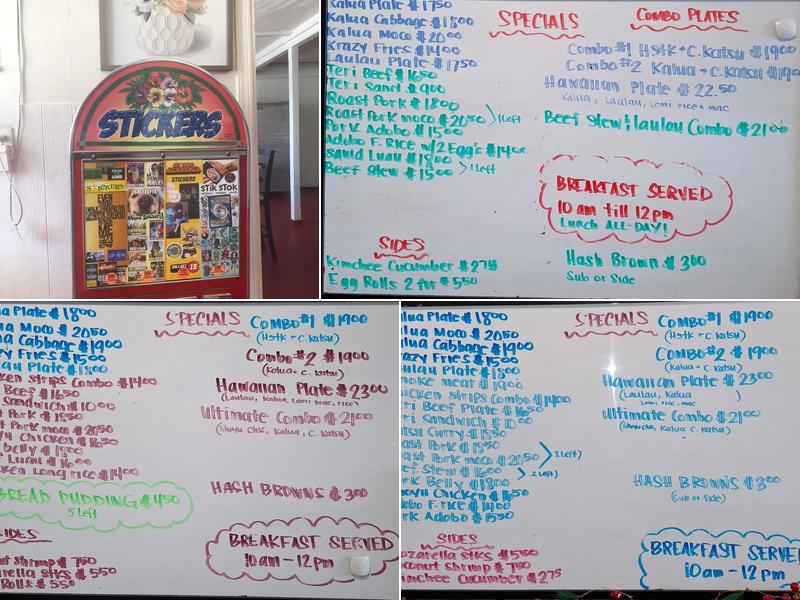 STICKERS
STICKERS
STICKERS
STIK STOK
EVEN
ME
15
Kalua Plate $1750
Kalua Cabbage $1800
Kalua Moco $2000
Krazy Fries $1400
Laulau Plate $1750
Teri Beef $1650
Teri Sand $900
Roast Pork $1800
Roast Pork moco $2050 > 1 left
Pork Adobo $1500
Adobo F. Rice w/2 Eggs $1400
Squid Luau $1800
Beef Stew $1500 > 1 left
SIDES
Kimchee Cucumber $275
Egg Rolls 2 for $550
SPECIALS
COMBO PLATES
Combo #1 Hstk + C. Katsu $1900
Combo #2 Kalua + C. Katsu $1900
Hawaiian Plate $22.50
Kalua, Laulau, Lomi, rice + mac
Beef Stew & laulau Combo $2100
BREAKFAST SERVED
10 am till 12 pm
Lunch ALL-DAY!
Hash Brown $300
Sub or Side
ua Plate $1800
ua Moco $2050
ua Cabbage $1900
zy Fries $1500
au Plate $1800
ken Strips Combo $1400
Beef $1650
Sandwich $1000
Pork $1800
Pork moco $2050
yu Chicken $1650
belly $1800
Luau $1600
ken Long rice $1400
BREAD PUDDING $450
5 left
SIDES
nut Shrimp $750
arella Stks $550
Rolls $550
SPECIALS
COMBO #1 $1900
(Hstk + C. Katsu)
Combo #2 $1900
(Kalua + C. Katsu)
Hawaiian Plate $2300
(Laulau, Kalua, Lomi mac, rice)
Ultimate Combo $2100
(Shoyu Chk, Kalua, C. Katsu)
HASH BROWNS $300
BREAKFAST SERVED
10am - 12 pm
lua Plate $1800
lua Moco $2050
lua Cabbage $1900
razy Fries $1500
ulau Plate $1800
moke meat $1900
hicken Strips Combo $1400
eri Beef Plate $1650
eri Sandwich $1000
atsu Curry $1850
oast Pork $1800
oast Pork moco $2050 > 2 left)
eef Stew $1600 > 2 left)
rk Belly $1800
oyu Chicken $1650
dobo F. Rice $1400
rk Adobo $1550
SIDES
ozarella Stks $550
oconut Shrimp $750
imchee Cucumber $275
SPECIALS
COMBO #1 $1900
(Hstk + C. Katsu)
COMBO #2 $1900
(Kalua + C. Katsu)
Hawaiian Plate $2300
(Laulau, Kalua
Lomi, rice, mac )
Ultimate Combo $2100
(Shoyu Chk, Kalua, C. Katsu)
HASH BROWNS $300
(Sub or Side)
BREAKFAST SERVE
10am - 12 pm